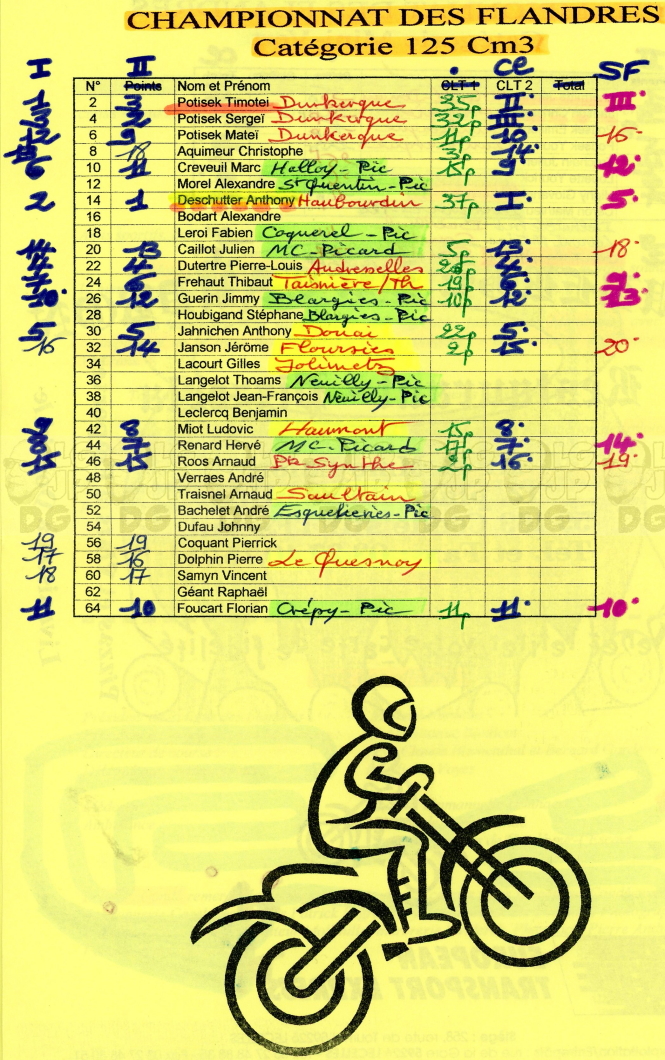 CHAMPIONNAT DES FLANDRES
Catégorie 125 Cm3
I II . CE SF
N° Points Nom et Prénom CLT 1 CLT 2 Total
2 Potisek Timotei Dunkerque 35p II. III.
4 Potisek Sergeï Dunkerque 32p III.
6 Potisek Mateï Dunkerque 11p 10. 15
8 18 Aquimeur Christophe 3p 14.
10 11 Creveuil Marc Halloy-Pic 15p 9. 12.
12 Morel Alexandre St Quentin-Pic
2 14 1 Deschutter Anthony Haubourdin 37p I. 5.
16 Bodart Alexandre
18 Leroi Fabien Coquerel-Pic
14 20 13 Caillot Julien MC-Picard 5p 13. 18.
4 22 4 Dutertre Pierre-Louis Audresselles 4.
7 24 6 Frehaut Thibaut Taisnière/Th 19p 6.
10. 26 12 Guerin Jimmy Blargies-Pic 10p 12. 13.
28 Houbigand Stéphane Blargies-Pic
5 30 5 Jahnichen Anthony Douai 22p 5.
15 32 14 Janson Jérôme Floursies 2p 15. 20.
34 Lacourt Gilles Jolimetz
36 Langelot Thoams Neuilly-Pic
38 Langelot Jean-François Neuilly-Pic
40 Leclercq Benjamin
42 8 Miot Ludovic Haumont 15p 8.
44 7 Renard Hervé MC-Picard 17p 7. 14.
46 15 Roos Arnaud Pk Synthe 2p 16. 19.
48 Verraes André
50 Traisnel Arnaud Saultain
52 Bachelet André Esquelieries-Pic
54 Dufau Johnny
19 56 19 Coquant Pierrick
17 58 16 Dolphin Pierre Le Quesnoy
18 60 17 Samyn Vincent
62 Géant Raphaël
11 64 10 Foucart Florian Crépy-Pic 11p 11. 10.